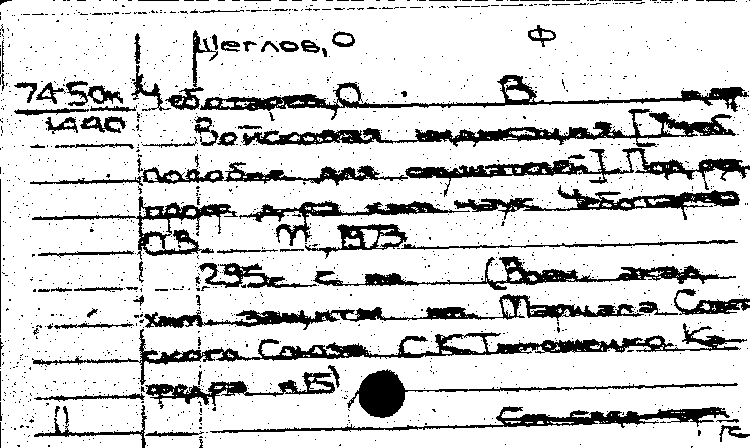 Щеглов, О Ф
74-50к Чеботарев, О В и др
1440 Войсковая индикация. [Учеб.
пособие для слушателей] Под ред
проф. д-ра хим наук Чеботарева
О.В. М., 1973.
295с с ил. (Воен. акад
хим защиты им. Маршала Совет
ского Союза С.К.Тимошенко. Ка
федра
См след карт.